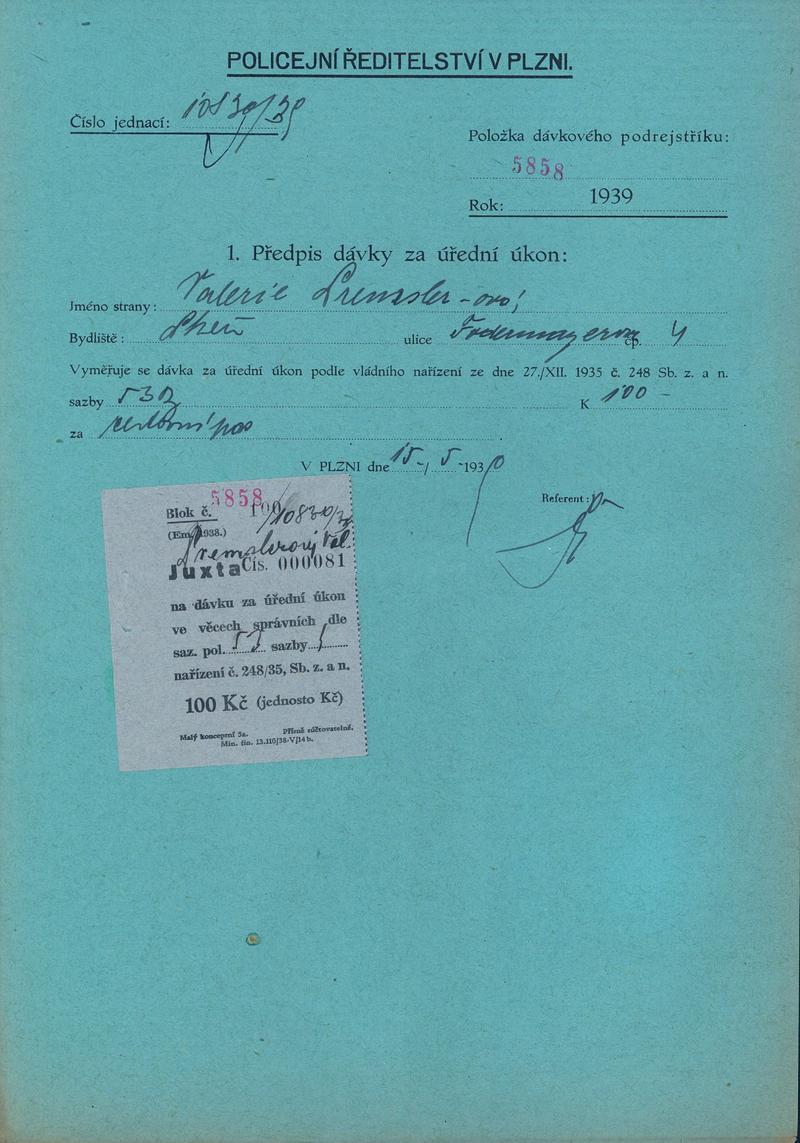 POLICEJNÍ ŘEDITELSTVÍ V PLZNI.
Číslo jednací: 10830/39
Položka dávkového podrejstříku:
5858
Rok: 1939
1. Předpis dávky za úřední úkon:
Jméno strany: Valerie
Bydliště: Plzeň ulice čp. 4
Vyměřuje se dávka za úřední úkon podle vládního nařízení ze dne 27./XII. 1935 č. 248 Sb. z. a n.
sazby 53 K 100 –
za cestovní pas
V PLZNI dne 15-/ 5 -1939
Referent:
5858
Blok č. 100
10830/39
(Em. 1938.)
Juxta Čís. 000081
na dávku za úřední úkon
ve věcech správních dle
saz. pol. 53 sazby
nařízení č. 248/35, Sb. z. a n.
100 Kč (jednosto Kč)
Malý koncepní 5a. Přísně zúčtovatelné.
Min. fin. 13.110/38-V/14 b.